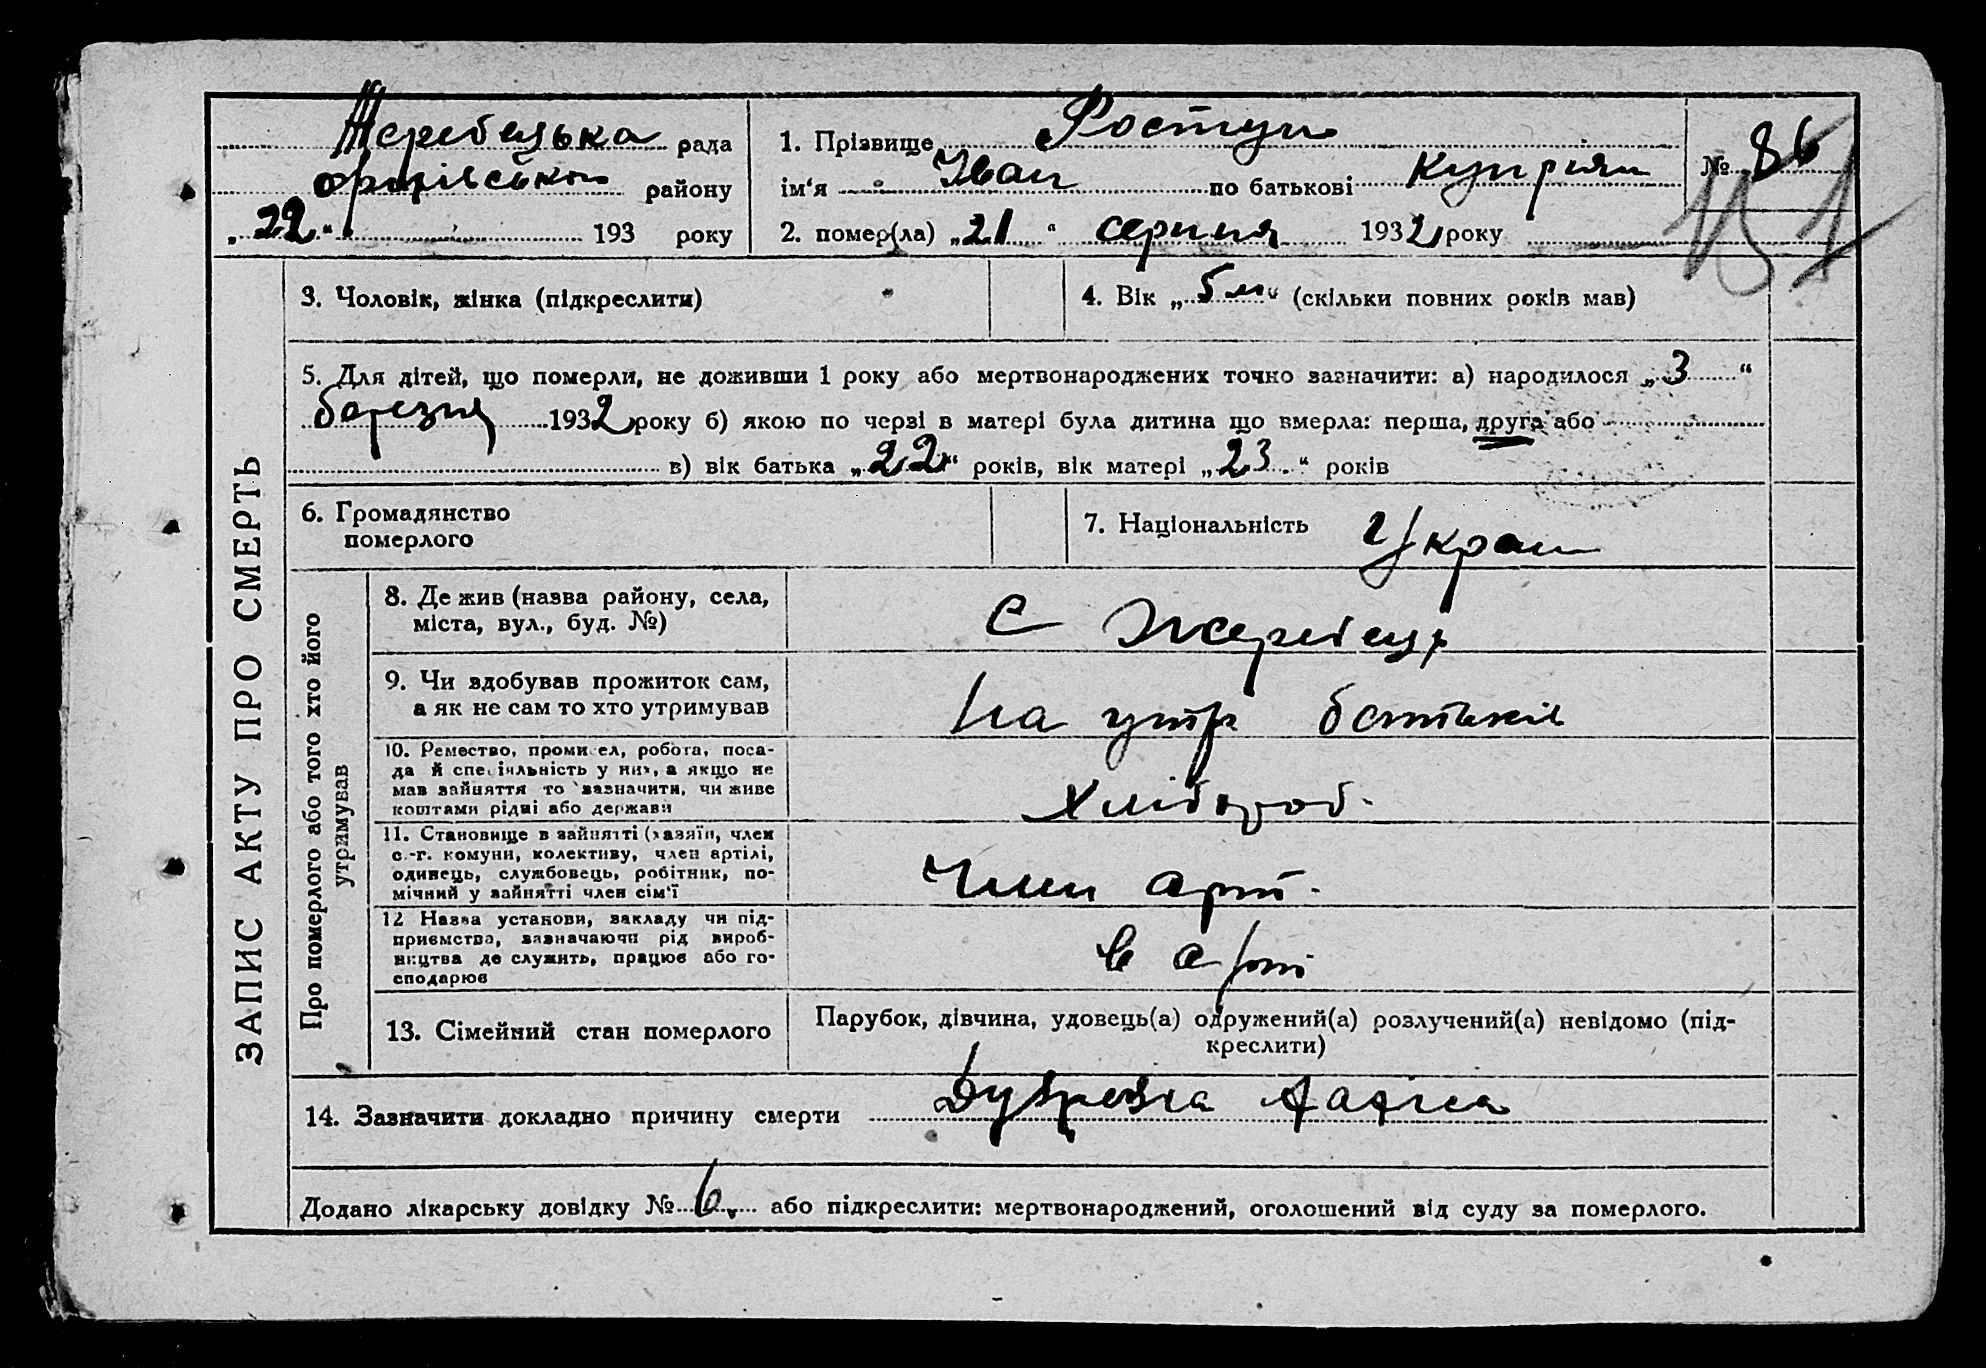 Жеребецька рада
Оріхівського району
„22“ 193 року
1. Прізвище
ім'я Іван по батькові Купріян
2. помер(ла) „21“ серпня 1932 року
№ 86
151
ЗАПИС АКТУ ПРО СМЕРТЬ
3. Чоловік, жінка (підкреслити)
4. Вік „5 м“ (скільки повних років мав)
5. Для дітей, що померли, не доживши 1 року або мертвонароджених точно зазначити: а) народилося „3“
березня 1932 року б) якою по черзі в матері була дитина що вмерла: перша, друга або
в) вік батька „22“ років, вік матері „23“ років
6. Громадянство
померлого
7. Національність Украін
Про померлого або того хто його
утримував
8. Де жив (назва району, села,
міста, вул., буд. №)
С Жеребець
9. Чи здобував прожиток сам,
а як не сам то хто утримував
На утр батьків
10. Ремество, промисел, робота, поса-
да й спеціяльність у них, а якщо не
мав зайняття то зазначити, чи живе
коштами рідні або держави
Хлібороб.
11. Становище в зайнятті (хазяїн, член
с.-г. комуни, колективу, член артілі,
одинець, службовець, робітник, по-
мічний у зайнятті член сім'ї
Член арт.
12 Назва установи, закладу чи під-
приємства, зазначаючи рід вироб-
ництва де служить, працює або го-
сподарює
в арт
13. Сімейний стан померлого
Парубок, дівчина, удовець(а) одружений(а) розлучений(а) невідомо (під-
креслити)
14. Зазначити докладно причину смерти
Додано лікарську довідку № 6. або підкреслити: мертвонароджений, оголошений від суду за померлого.